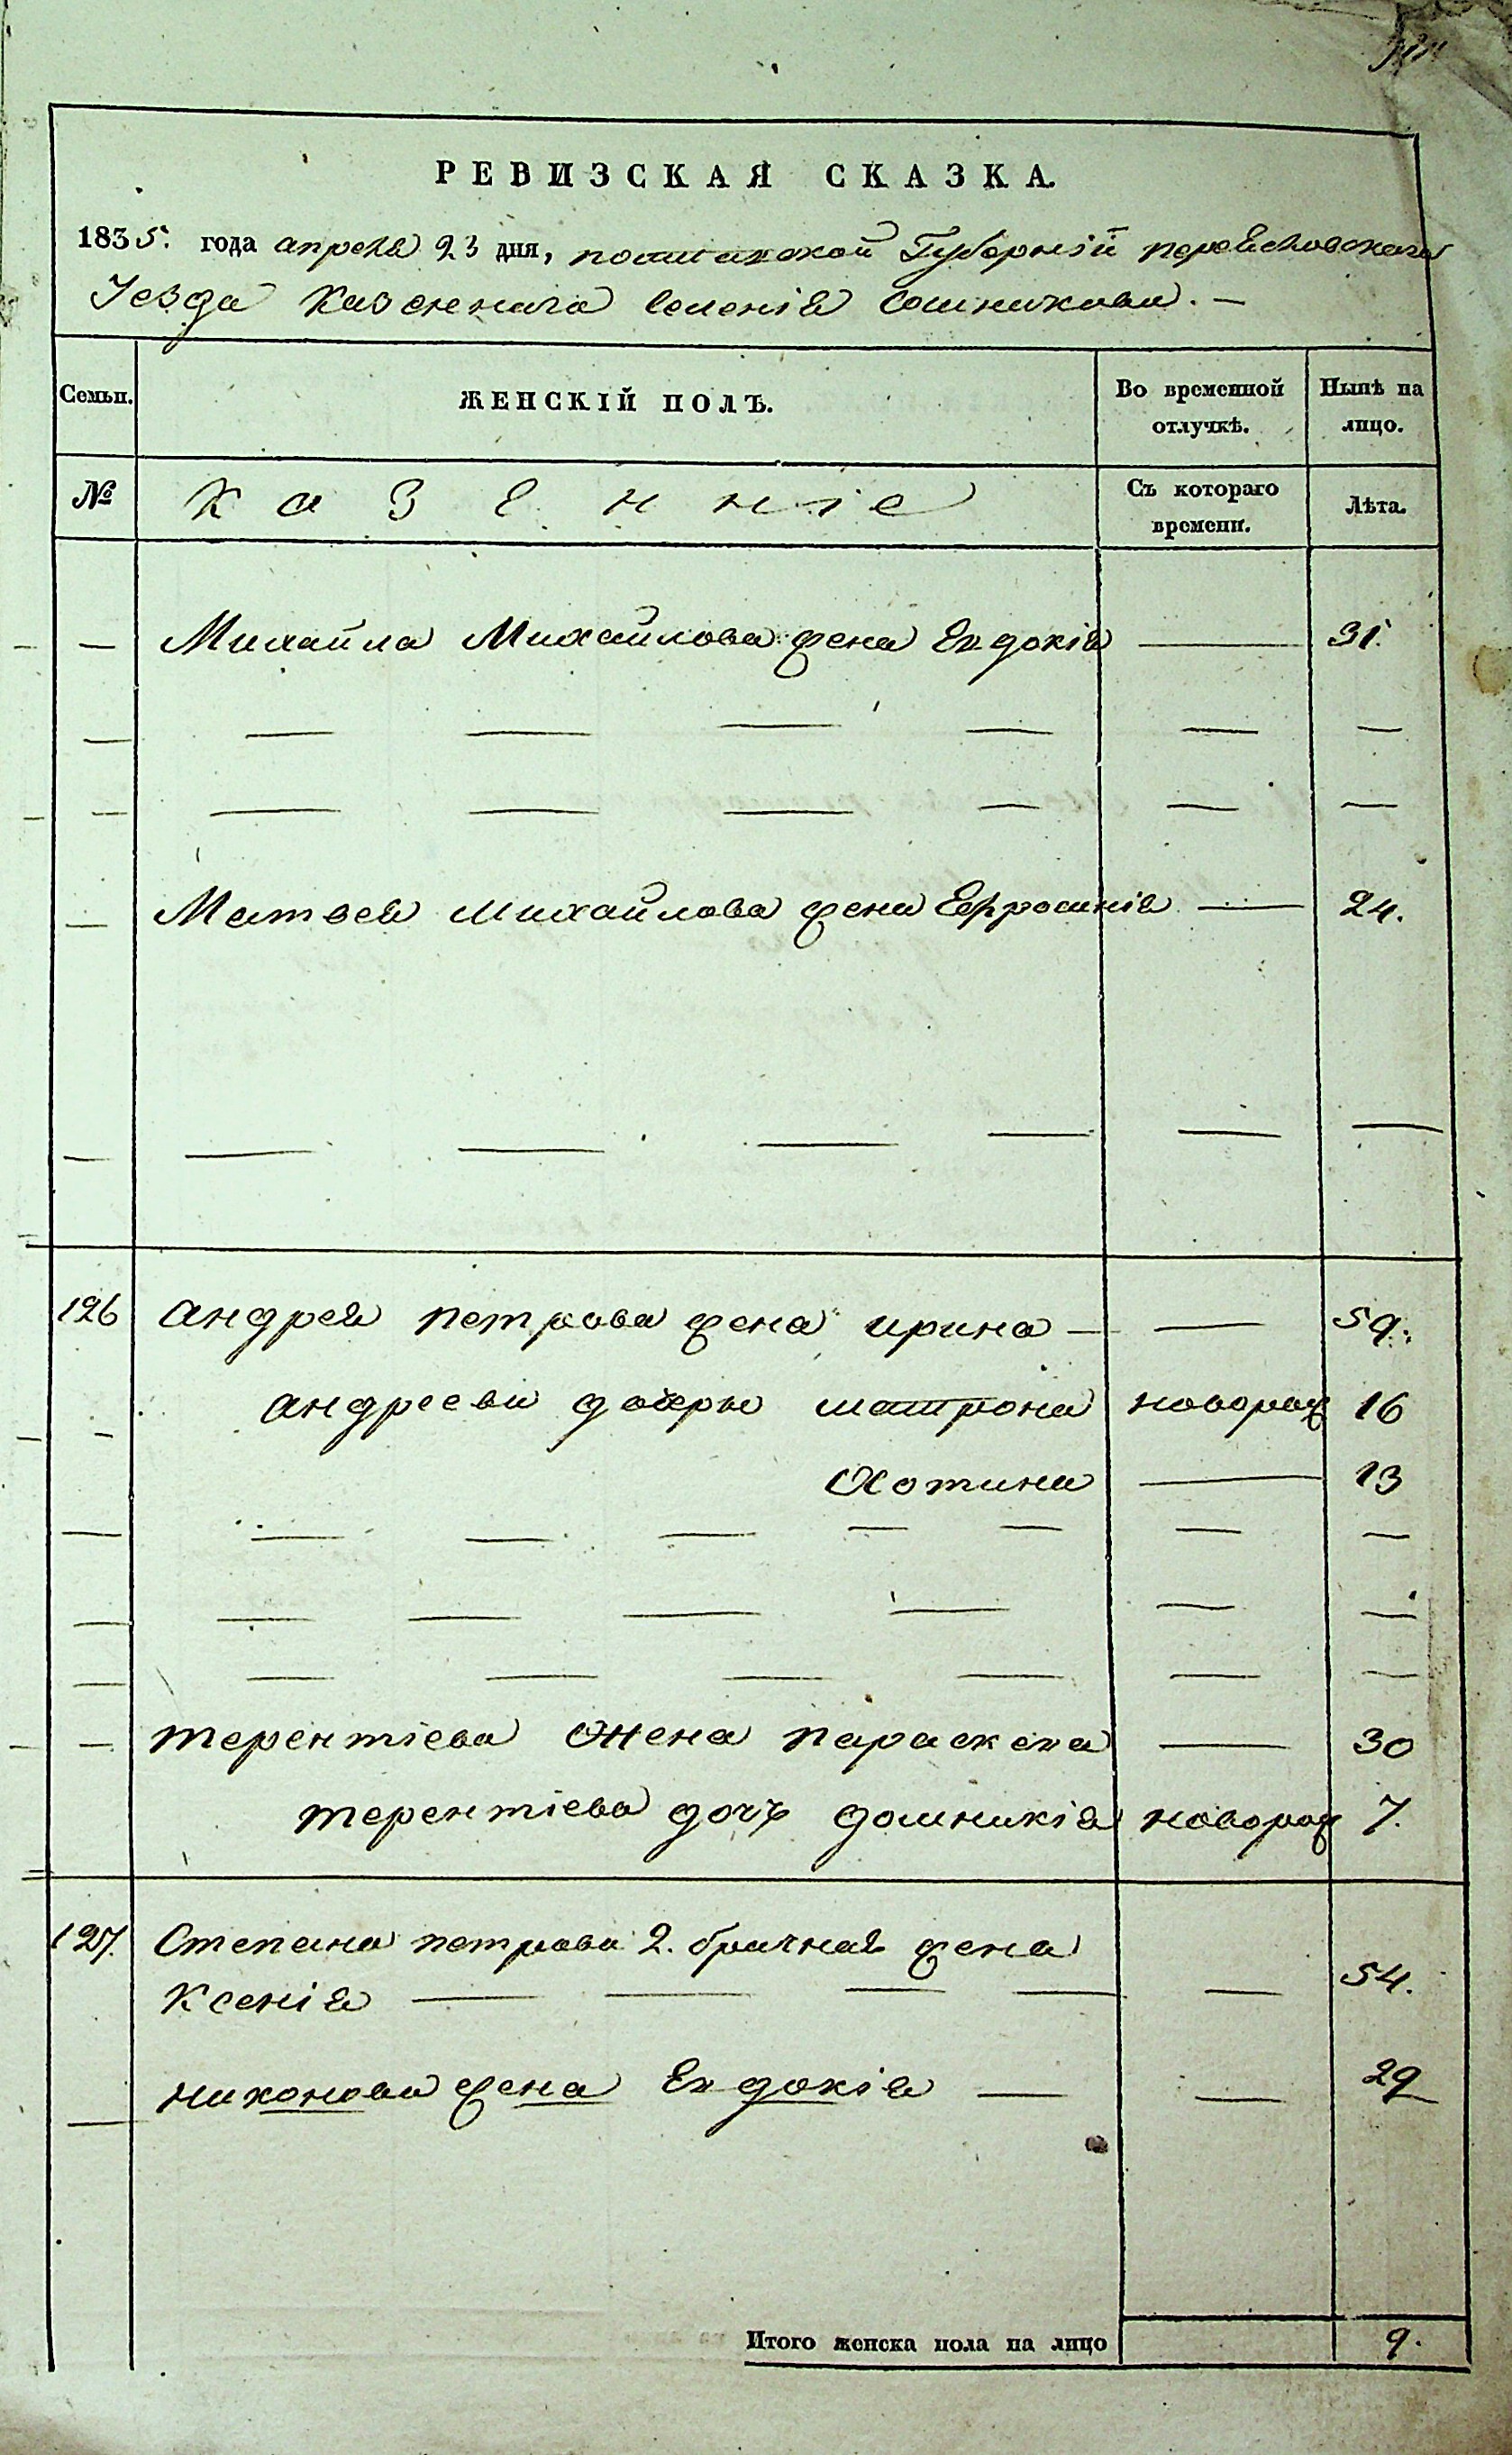 РЕВИЗСКАЯ СКАЗКА.
1835. года апреля 23 дня, полтавской Губерніи переяславскаго
Уезда Казеннаго селенія Сошникова. —
Семьи. ЖЕНСКІЙ ПОЛЪ. Во временной отлучкѣ. Нынѣ на лицо.
№ Казенніе Съ котораго времени. Лѣта.
— Михайла Михайлова жена Евдокія — 31.
— — — — — — —
— — — — — — —
— Матвея Михайлова жена Ефросинія — 24.
— — — — — — —
126 андрея петрова жена ирина — — 59.
— андреевы дочеры матрона новорож 16
Хотина — 13
— — — — — — — —
— — — — — — —
— — — — — — —
— терентіева жена параскева — 30
терентіева дочь домникія новорож 7.
127. Степана петрова 2. брачная жена
Ксенія — — — — — 54.
— никонова жена Евдокія — — 29
Итого женска пола на лицо 9.